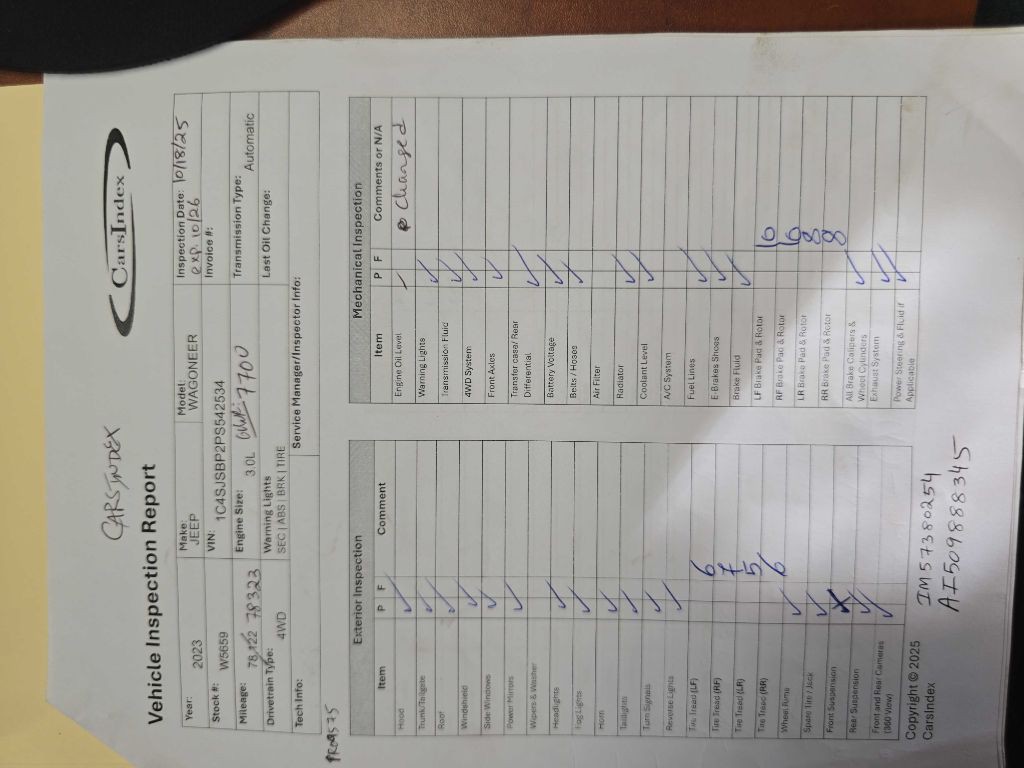 CARSINDEX
CarsIndex
Vehicle Inspection Report
Year: 2023 Make: JEEP Model: WAGONEER Inspection Date: 10/18/25
exp. 10/26
Stock #: W5659 VIN: 1C4SJSBP2PS542534 Invoice #:
Mileage: 78,122 78323 Engine Size: 3.0L 7700 Transmission Type: Automatic
Drivetrain Type: 4WD Warning Lights SEC | ABS | BRK | TIRE Last Oil Change:
Tech Info: Service Manager/Inspector Info:
Exterior Inspection
Item P F Comment
Hood ✓
Trunk/Tailgate ✓
Roof ✓
Windshield ✓
Side Windows ✓
Power Mirrors ✓
Wipers & Washer
Headlights ✓
Fog Lights ✓
Horn ✓
Taillights ✓
Turn Signals ✓
Reverse Lights ✓
Tire Tread (LF) 6
Tire Tread (RF) 7
Tire Tread (LR) 5
Tire Tread (RR) 6
Wheel Rims ✓
Spare Tire / Jack ✓
Front Suspension
Rear Suspension ✓
Front and Rear Cameras (360 View) ✓
Mechanical Inspection
Item P F Comments or N/A
Engine Oil Level ✓ Changed
Warning Lights ✓
Transmission Fluid ✓
4WD System ✓
Front Axles ✓
Transfer case/ Rear Differential ✓
Battery Voltage ✓
Belts / Hoses ✓
Air Filter
Radiator ✓
Coolant Level ✓
A/C System
Fuel Lines ✓
E-Brakes Shoes ✓
Brake Fluid ✓
LF Brake Pad & Rotor 6
RF Brake Pad & Rotor 6
LR Brake Pad & Rotor 8
RR Brake Pad & Rotor 8
All Brake Calipers & Wheel Cylinders ✓
Exhaust System ✓
Power Steering & Fluid if Applicable ✓
Copyright © 2025
CarsIndex
IM57380254
AI509888345